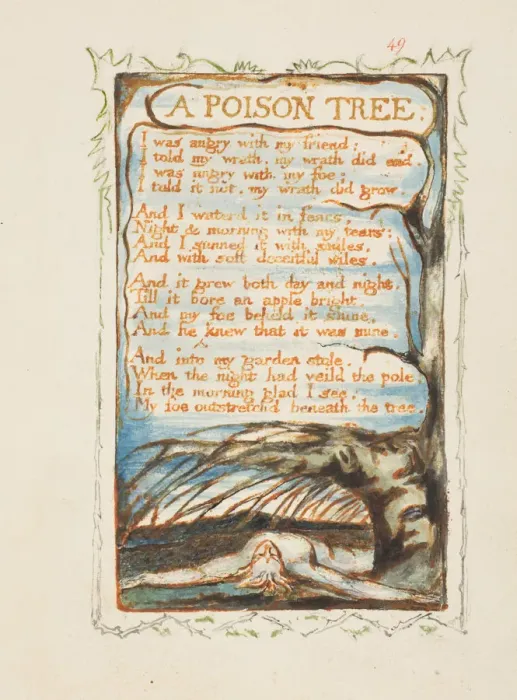 49
A POISON TREE.
I was angry with my friend:
I told my wrath, my wrath did end.
I was angry with my foe:
I told it not, my wrath did grow.
And I waterd it in fears,
Night & morning with my tears:
And I sunned it with smiles,
And with soft deceitful wiles.
And it grew both day and night,
Till it bore an apple bright.
And my foe beheld it shine,
And he knew that it was mine.
And into my garden stole.
When the night had veild the pole
In the morning glad I see,
My foe outstretchd beneath the tree.